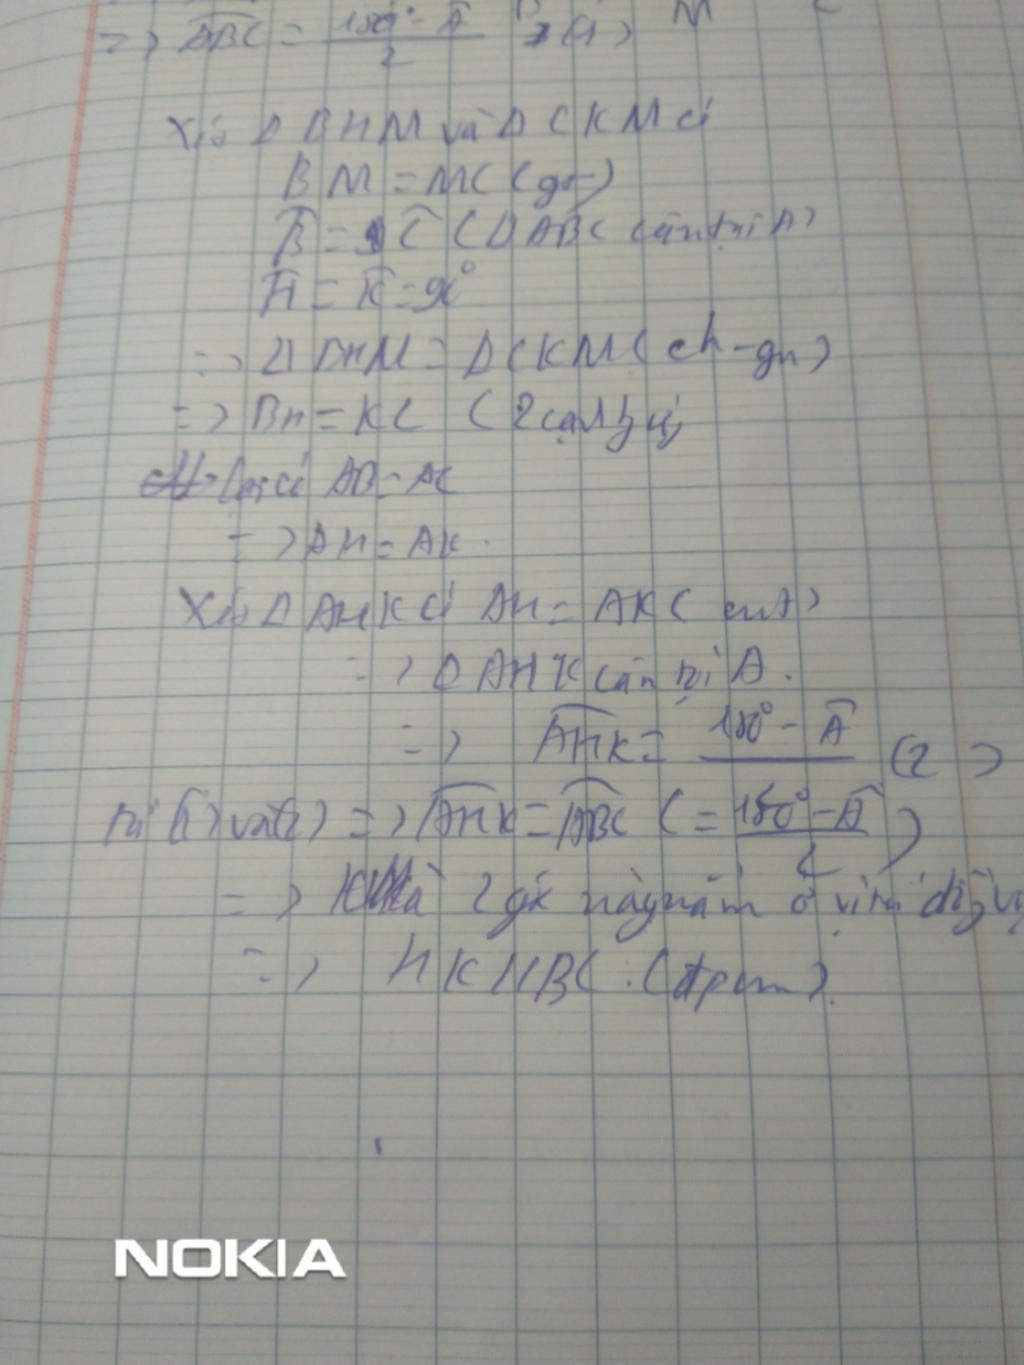 => ABC = 180° - A / 2 (1) M C
Xét Δ BHM và Δ CKM có
BM = MC (gt)
B = C (ΔABC cân tại A)
H = K = 90°
=> Δ BHM = Δ CKM (ch - gn)
=> BH = KC (2 cạnh
Lại có AB = AC
=> AH = AK.
Xét Δ AHK có AH = AK (cmt)
=> Δ AHK cân tại A.
=> AHK = 180° - A (2)
Từ (1) và (2) => AHK = ABC (= 180° - A / 2)
=> Mà 2 góc này nằm ở vị trí đồng vị
=> HK // BC. (đpcm).
NOKIA